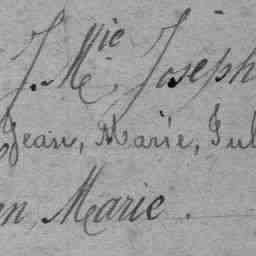 J. Mie Joseph
Jean, Marie, Jul
en Marie.